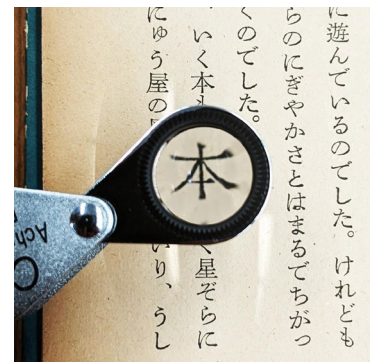 に遊んでいるのでした。けれども
らのにぎやかさとはまるでちがっ
くのでした。
いく本も
本
く星ぞらに
にゅう屋の
り、うし
Ach